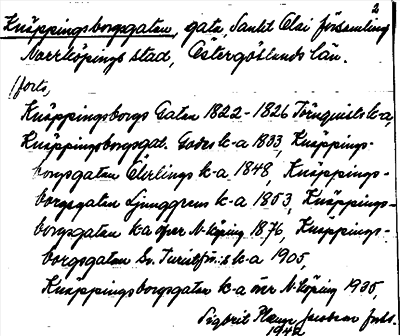 2
Knäppingsborgsgatan, gata, Sankt Olai församling
Norrköpings stad, Östergötlands län.
(forts,
Knäppingsborgs Gatan 1822-1826 Törnquists k-a,
Knäppingsborgsgat. Godes k-a 1833, Knäppings-
borgsgatan Gierlings k-a 1848, Knäppings-
borgsgatan Ljunggrens k-a 1853, Knäppings-
borgsgatan k-a öfver N-köping 1876, Knäppings-
borgsgatan Sv. Turistför:s k-a 1905
Knäppingsborgsgatan k-a över N-köping 1935,
Sigbrit Plænge Jacobson
1942